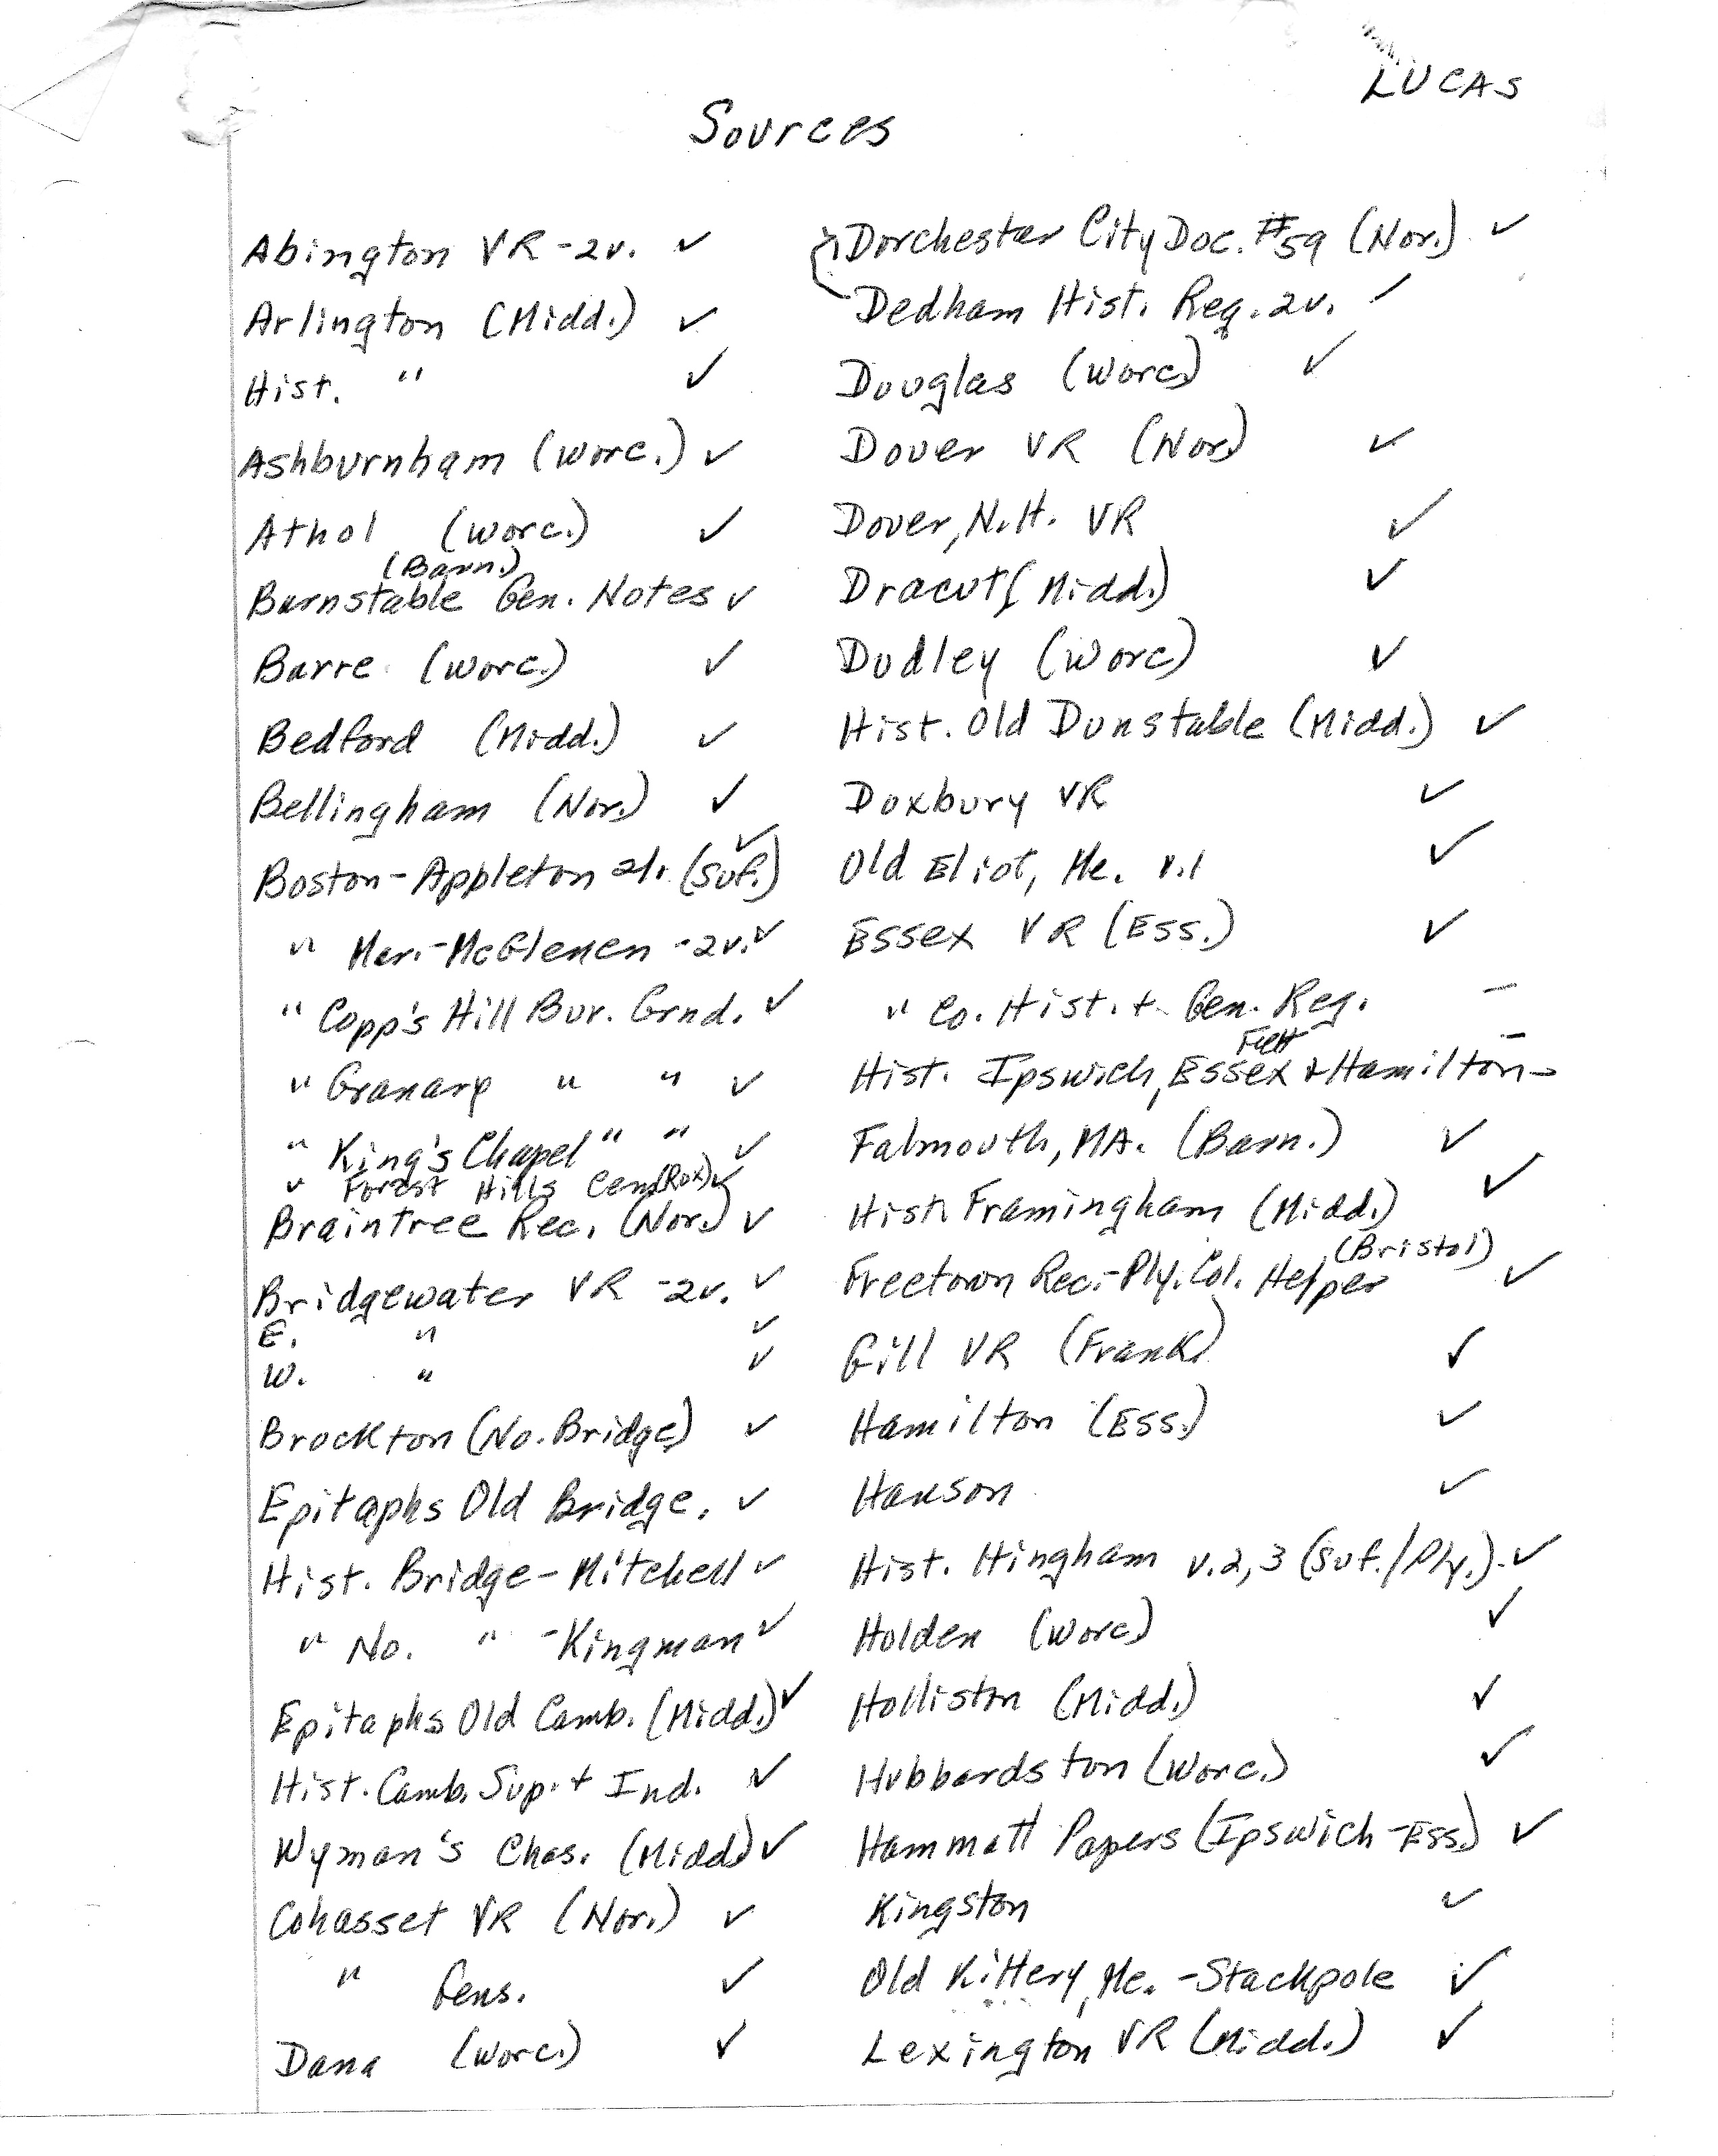 LUCAS
Sources
Abington VR - 2v. ✓
Arlington (Midd.) ✓
Hist. " ✓
Ashburnham (Worc.) ✓
Athol (Worc.) ✓
(Barn.)
Barnstable Gen. Notes ✓
Barre (Worc.) ✓
Bedford (Midd.) ✓
Bellingham (Nor.) ✓
Boston - Appleton (Suf.) ✓
" Mar. - McGlenen - 2v. ✓
" Copp's Hill Bur. Grnd. ✓
" Granary " " ✓
" King's Chapel " " ✓
" Forest Hills Cem (Rox) ✓
Braintree Rec. (Nor.) ✓
Bridgewater VR - 2v. ✓
E. " ✓
W. " ✓
Brockton (No. Bridge) ✓
Epitaphs Old Bridge. ✓
Hist. Bridge - Mitchell ✓
" No. " - Kingman ✓
Epitaphs Old Camb. (Midd.) ✓
Hist. Camb. Sup. + Ind. ✓
Wyman's Chas. (Midd) ✓
Cohasset VR (Nor.) ✓
" Gens. ✓
Dana (Worc.) ✓
Dorchester City Doc. #59 (Nor.) ✓
Dedham Hist. Reg. 2v. ✓
Douglas (Worc) ✓
Dover VR (Nor) ✓
Dover, N.H. VR ✓
Dracut (Midd.) ✓
Dudley (Worc) ✓
Hist. Old Dunstable (Midd.) ✓
Duxbury VR ✓
Old Eliot, Me. v.1 ✓
Essex VR (Ess.) ✓
" Co. Hist. + Gen. Reg. -
Felt -
Hist. Ipswich, Essex + Hamilton -
Falmouth, MA. (Barn.) ✓
Hist. Framingham (Midd.) ✓
(Bristol)
Freetown Rec. - Ply. Col. Helper ✓
Gill VR (Frank) ✓
Hamilton (Ess.) ✓
Hanson ✓
Hist. Hingham v. 2, 3 (Suf./Ply.) - ✓
Holden (Worc) ✓
Holliston (Midd.) ✓
Hubbardston (Worc.) ✓
Hammatt Papers (Ipswich - Ess.) ✓
Kingston ✓
Old Kittery, Me. - Stackpole ✓
Lexington VR (Midd.) ✓